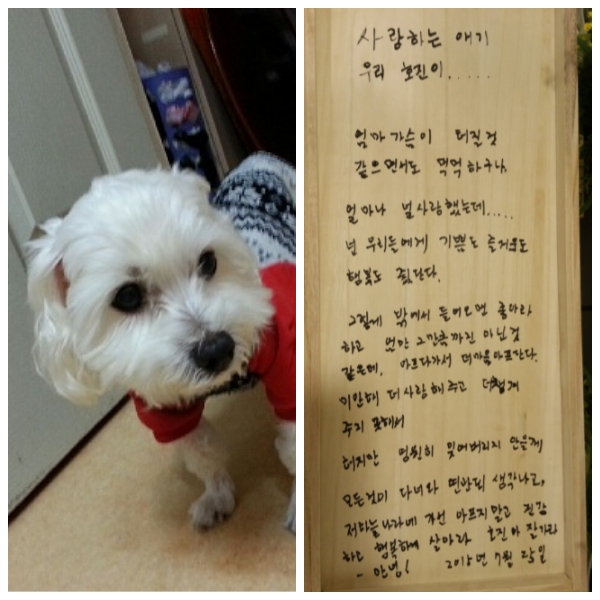 사랑하는 애기
우리 호진이.....
엄마 가슴이 터질것
같으면서도 먹먹하구나
얼마나 널 사랑했는데.....
넌 우리들에게 기쁨도 즐거움도
행복도 줬단다.
밖에서 들어오면 좋아라
하고
같은데, 아프다가서 더 마음 아프단다.
미안해 더 사랑해 주고
주지 못해서
허지만 영원히 잊어버리지 안을게
모든것이 다 너와 연관되 생각나고,
저하늘나라에 가선 아프지말고 건강
하고 행복하게 살아라 호진아 잘가라
- 안녕! 2015년 7월 25일